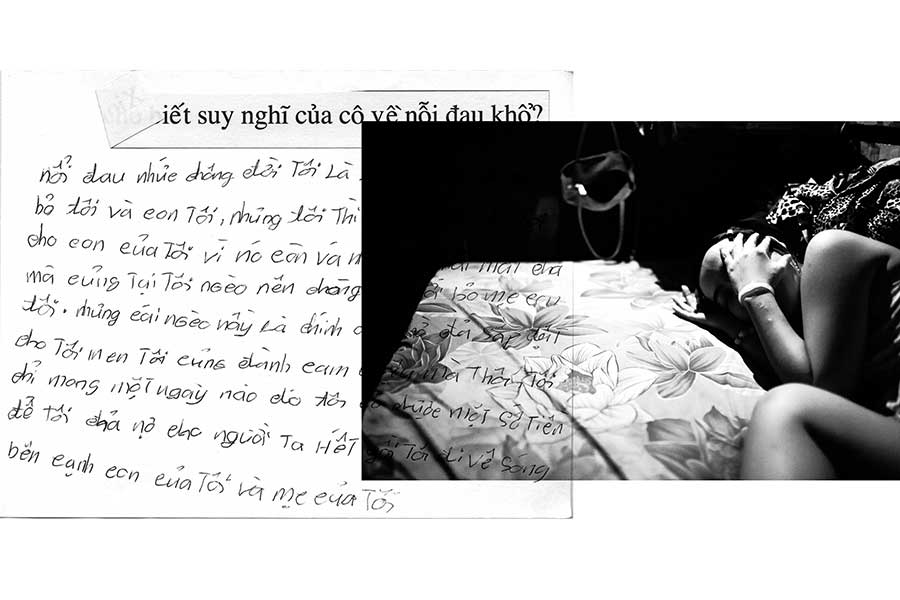 iết suy nghĩ của cô về nỗi đau khổ?
nổi đau nhức chông đời Tôi Là
bỏ tôi và con Tôi, nhủng tôi Thì
cho con của Tôi vì nó còn mất cha
mà củng Tại Tôi ngèo nên chòng bỏ mẹ con
tôi. nhủng cái ngèo nầy Là chính đả sắp đặt
cho Tôi nen Tôi củng đành cam mà Thôi, Tôi
chỉ mong một ngày nào đó tôi được một Số Tiền
để Tôi chả nợ cho người Ta Hết rồi Tôi đi về Sóng
bên cạnh con của Tôi và mẹ của Tôi